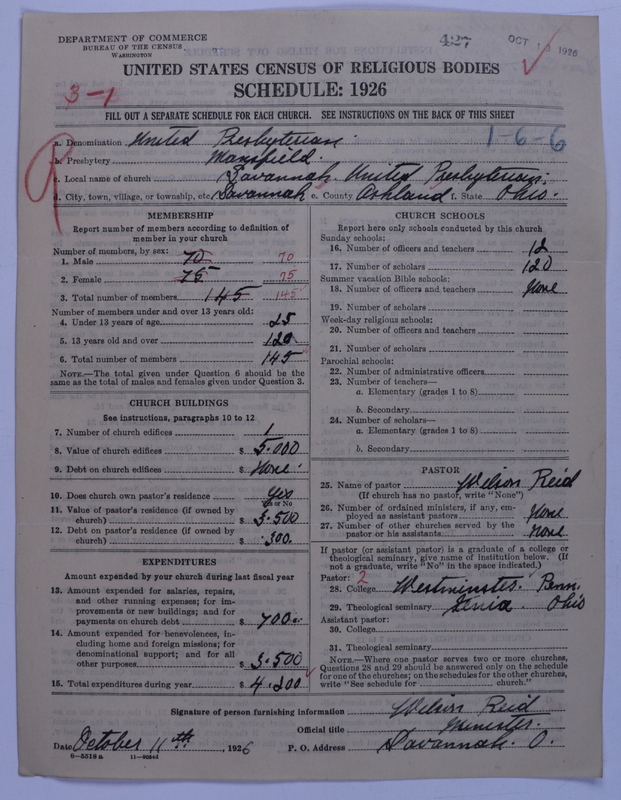 DEPARTMENT OF COMMERCE
BUREAU OF THE CENSUS
WASHINGTON
427
OCT 13 1926
UNITED STATES CENSUS OF RELIGIOUS BODIES
SCHEDULE: 1926
3-1
FILL OUT A SEPARATE SCHEDULE FOR EACH CHURCH. SEE INSTRUCTIONS ON THE BACK OF THIS SHEET
1-6-6
a. Denomination United Presbyterian.
b. Presbytery Mansfield.
c. Local name of church Savannah United Presbyterian.
d. City, town, village, or township, etc. Savannah e. County Ashland f. State Ohio.
MEMBERSHIP
Report number of members according to definition of
member in your church
Number of members, by sex:
1. Male 70 70
2. Female 75 75
3. Total number of members 145 145
Number of members under and over 13 years old:
4. Under 13 years of age 25
5. 13 years old and over 120
6. Total number of members 145
NOTE.—The total given under Question 6 should be the
same as the total of males and females given under Question 3.
CHURCH BUILDINGS
See instructions, paragraphs 10 to 12
7. Number of church edifices 1
8. Value of church edifices $ 5.000
9. Debt on church edifices $ None.
10. Does church own pastor's residence Yes
Yes or No
11. Value of pastor's residence (if owned by
church) $ 3.500
12. Debt on pastor's residence (if owned by
church) $ .300.
EXPENDITURES
Amount expended by your church during last fiscal year
13. Amount expended for salaries, repairs,
and other running expenses; for im-
provements or new buildings; and for
payments on church debt $ 700.
14. Amount expended for benevolences, in-
cluding home and foreign missions; for
denominational support; and for all
other purposes $ 3.500
15. Total expenditures during year $ 4.200
CHURCH SCHOOLS
Report here only schools conducted by this church
Sunday schools:
16. Number of officers and teachers 12
17. Number of scholars 120
Summer vacation Bible schools:
18. Number of officers and teachers None
19. Number of scholars
Week-day religious schools:
20. Number of officers and teachers
21. Number of scholars
Parochial schools:
22. Number of administrative officers
23. Number of teachers—
a. Elementary (grades 1 to 8)
b. Secondary
24. Number of scholars—
a. Elementary (grades 1 to 8)
b. Secondary
PASTOR
25. Name of pastor Wilson Reid
(If church has no pastor, write "None")
26. Number of ordained ministers, if any, em-
ployed as assistant pastors None
27. Number of other churches served by the
pastor or his assistants None
If pastor (or assistant pastor) is a graduate of a college or
theological seminary, give name of institution below. (If
not a graduate, write "No" in the space indicated.)
Pastor: 2
28. College Westminster. Penn.
29. Theological seminary Xenia. Ohio
Assistant pastor:
30. College
31. Theological seminary
NOTE.—Where one pastor serves two or more churches,
Questions 28 and 29 should be answered only on the schedule
for one of the churches; on the schedules for the other churches,
write "See schedule for church."
Signature of person furnishing information Wilson Reid
Official title Minister.
Date October 11th, 1926 P. O. Address Savannah. O.